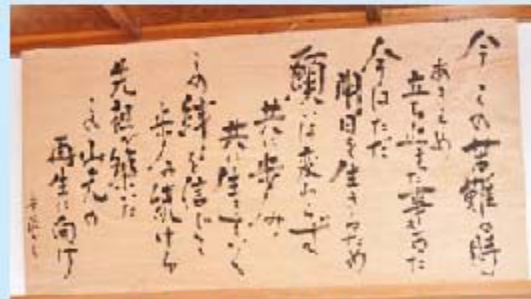 今 この苦難の時
あきらめ
立ち止まった事があった
今はただ
明日を生きるため
願いは変わらずに
共に歩み
共に生きていく
この絆を信じて
歩み続ける
先祖が築いた
この山元の
再生に向け